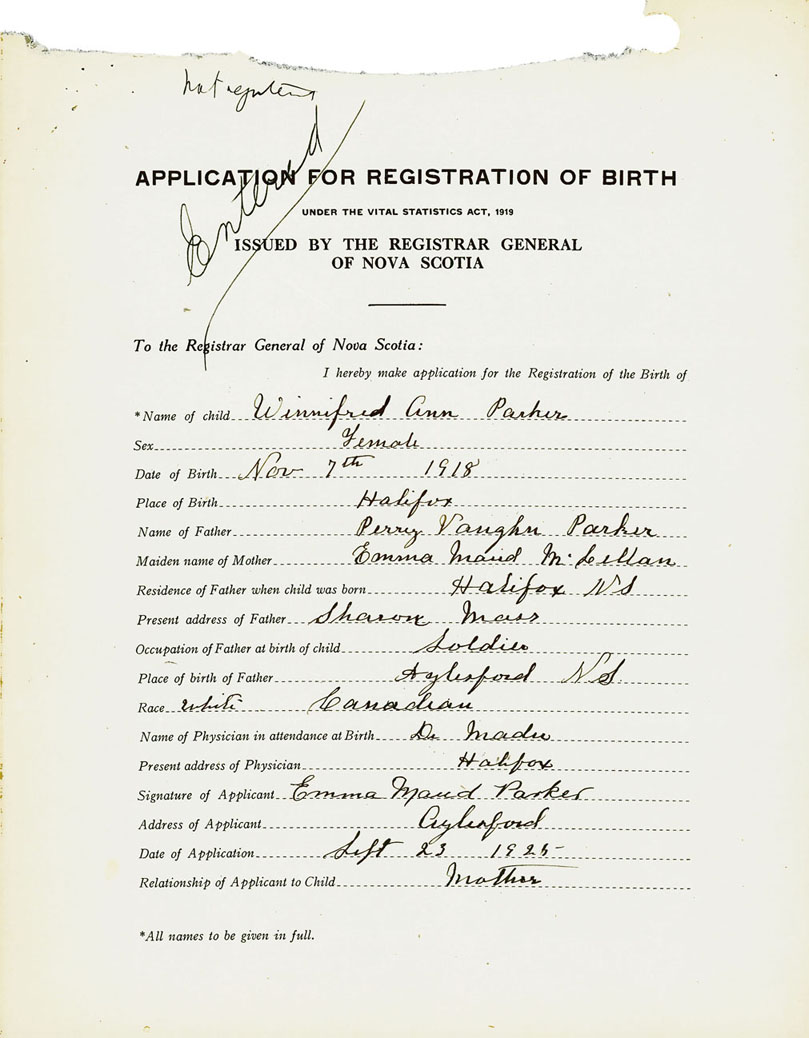 Not registered
Entered
APPLICATION FOR REGISTRATION OF BIRTH
UNDER THE VITAL STATISTICS ACT, 1919
ISSUED BY THE REGISTRAR GENERAL
OF NOVA SCOTIA
To the Registrar General of Nova Scotia:
I hereby make application for the Registration of the Birth of
*Name of child Winnifred Ann Parker
Sex Female
Date of Birth Nov 7th 1918
Place of Birth Halifax
Name of Father Perry Vaughn Parker
Maiden name of Mother Emma Maud McLellan
Residence of Father when child was born Halifax NS
Present address of Father Sharon Mass
Occupation of Father at birth of child Soldier
Place of birth of Father Aylesford NS
Race White Canadian
Name of Physician in attendance at Birth Dr
Present address of Physician Halifax
Signature of Applicant Emma Maud Parker
Address of Applicant Aylesford
Date of Application Sept 23 1925
Relationship of Applicant to Child Mother
*All names to be given in full.